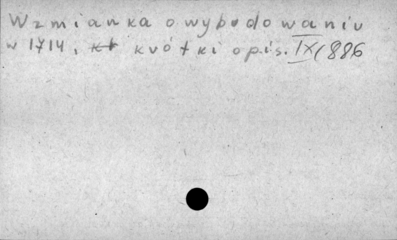 Wzmianka o wybudowaniu
w 1714, krótki opis. IX/886